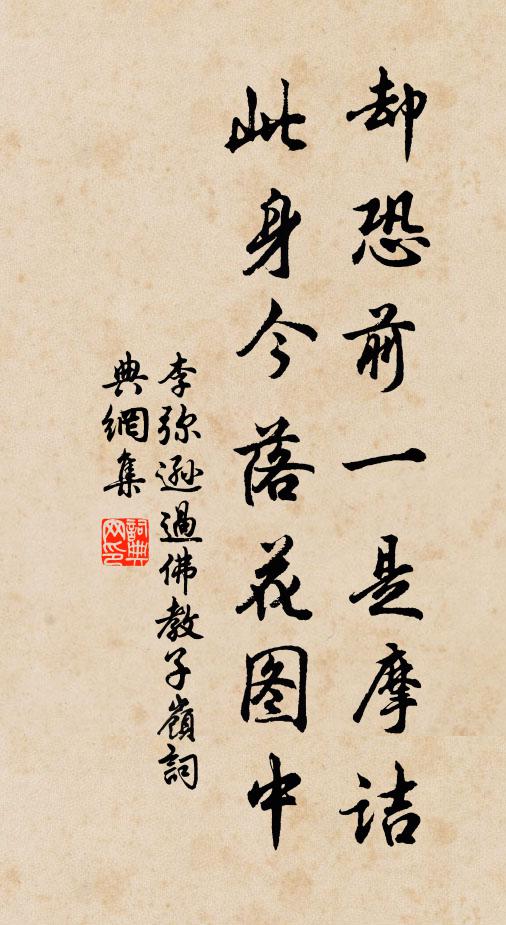 却恐前一是摩诘
此身今落花图中
李弥遜過佛教子嶺詞
典網集
詞典网印